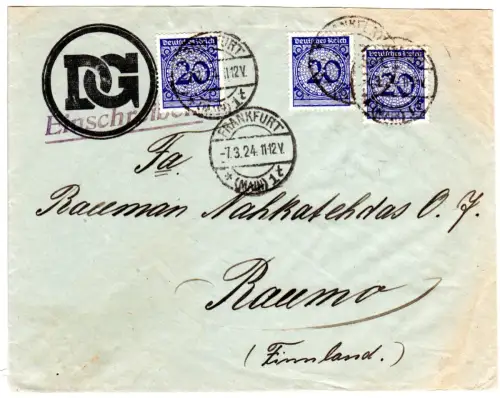 DG
Einschreiben
Deutsches Reich
20
Deutsches Reich
20
Deutsches Reich
20
FRANKFURT
-7.3.24.11-12V.
* (MAIN) 1t
Fa.
Rauman Nahkatehdas O. Y.
Raumo
(Finnland.)